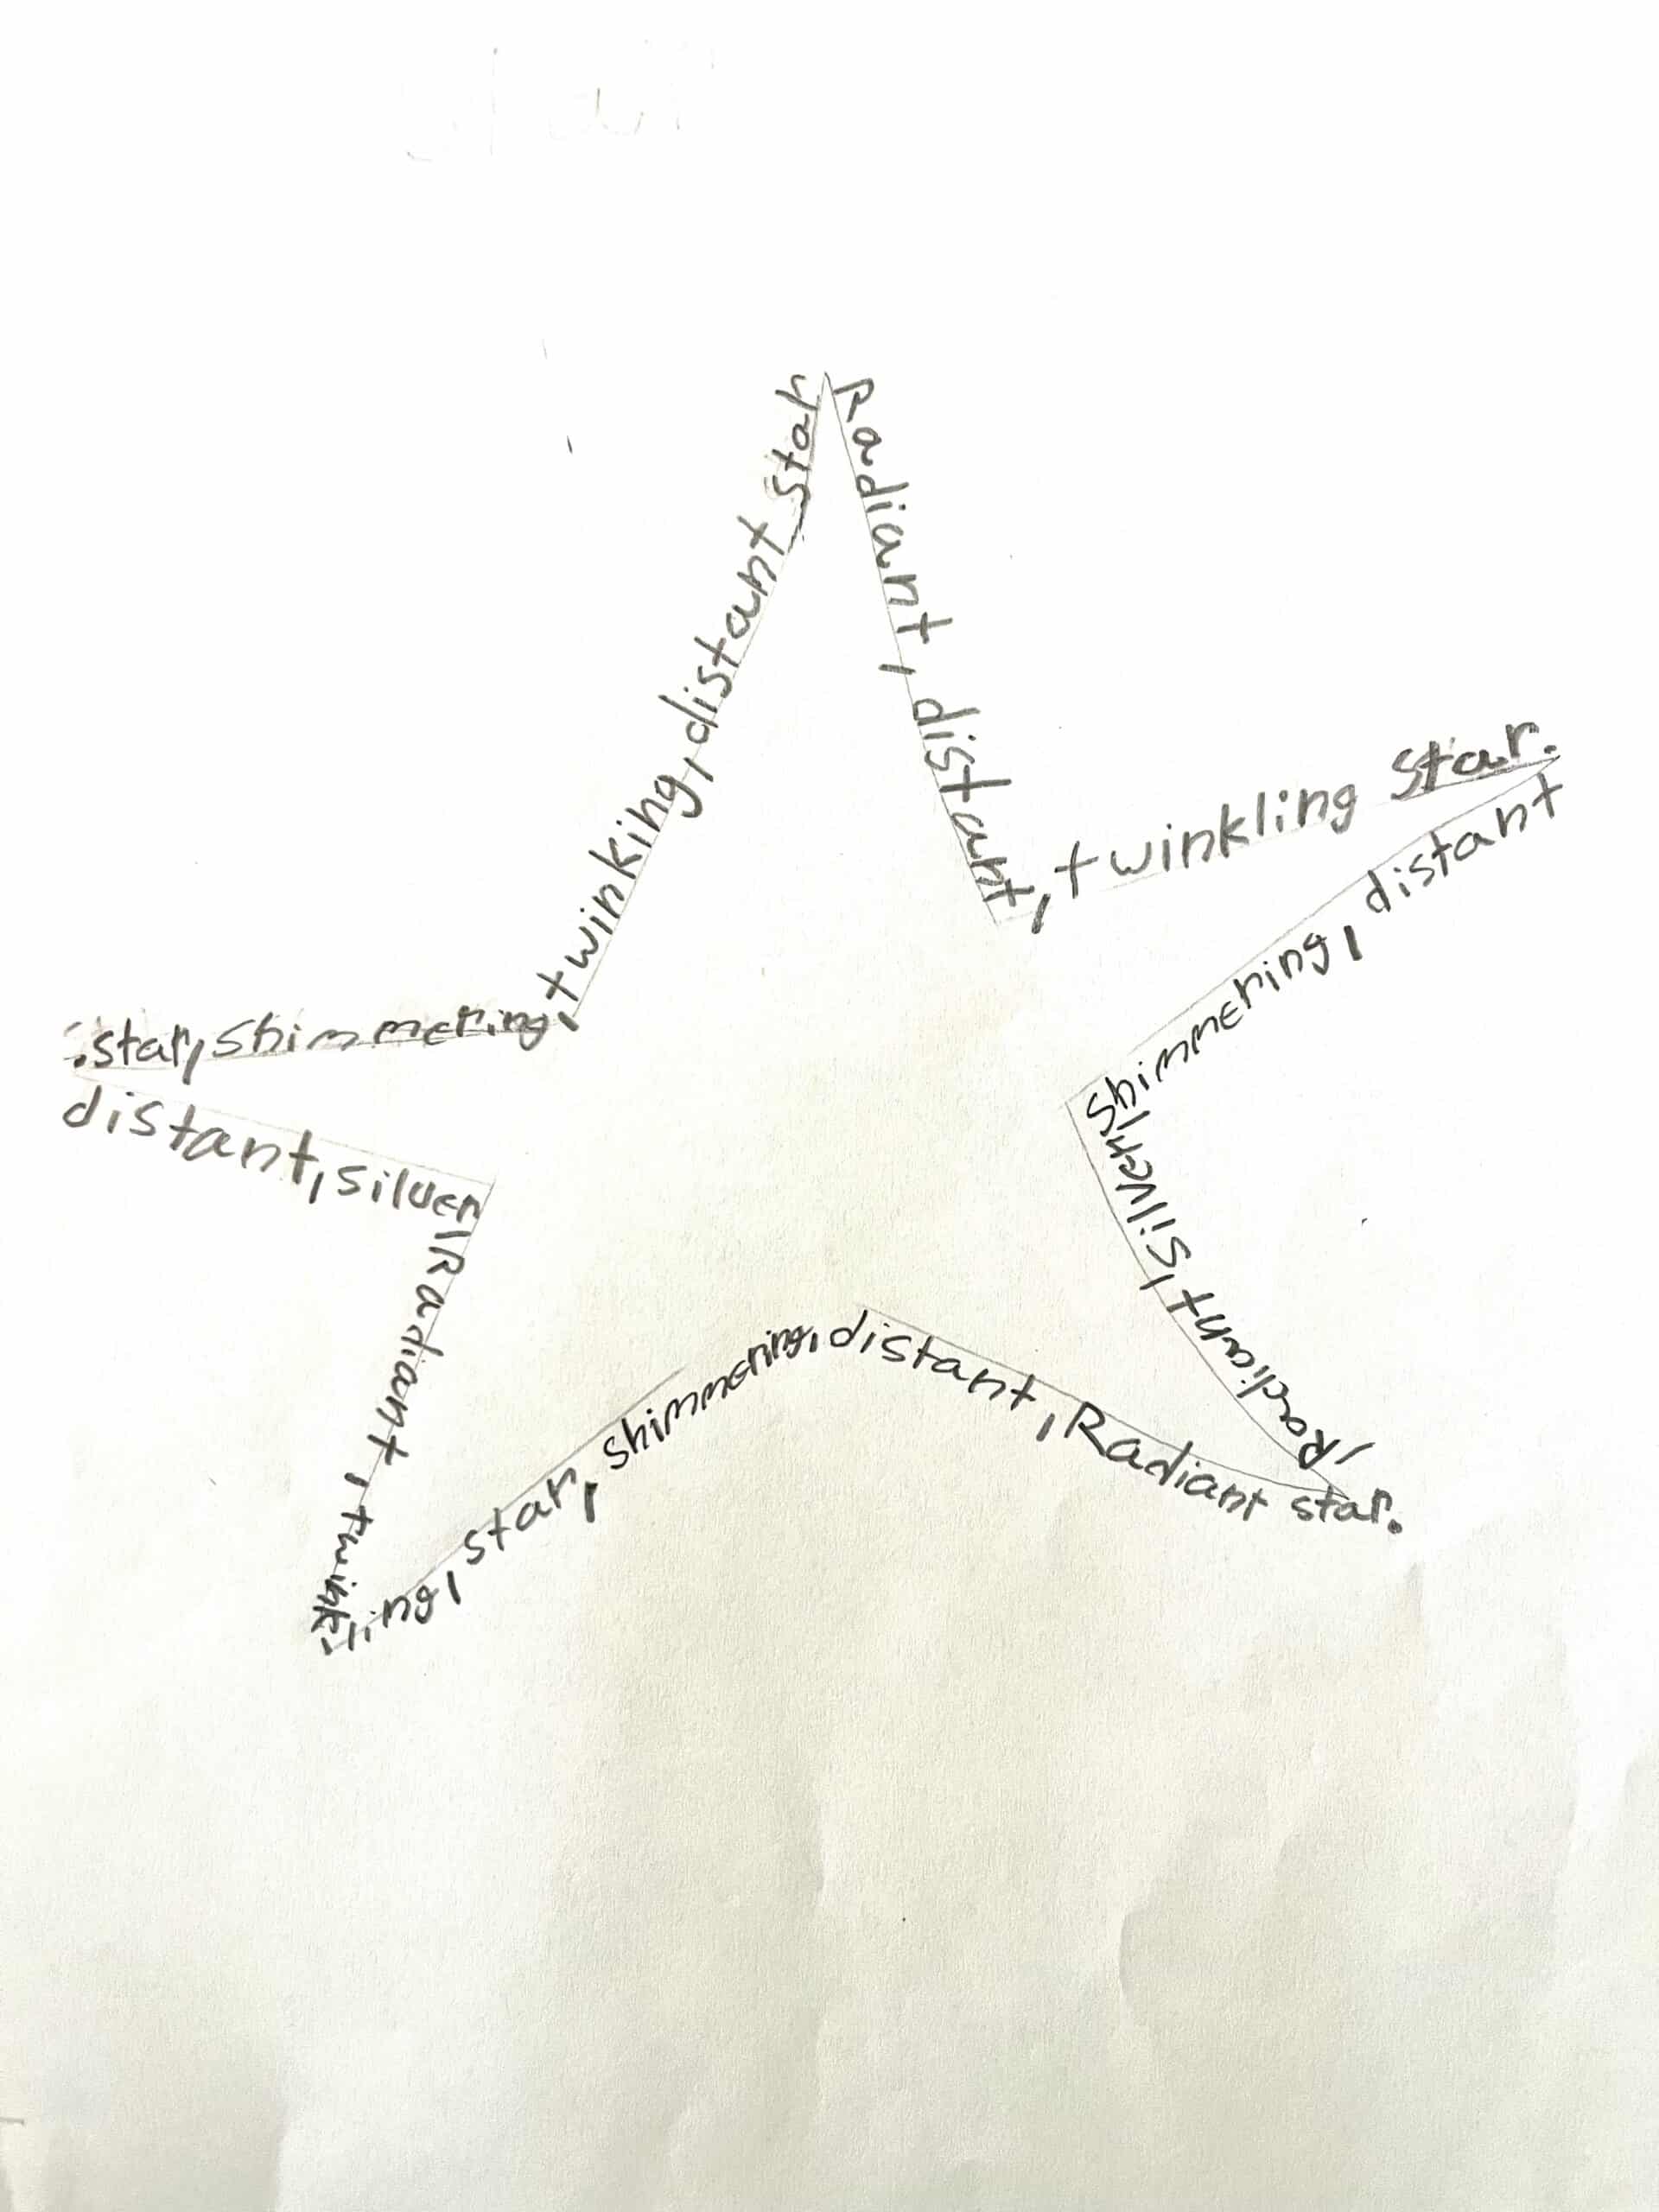 star, shimmering,
twinking, distant star
Radiant, distant,
twinkling star.
shimmering, distant
, Radiant, silver,
distant, silver,
Radiant, twinkling,
star, shimmering,
distant, Radiant star.